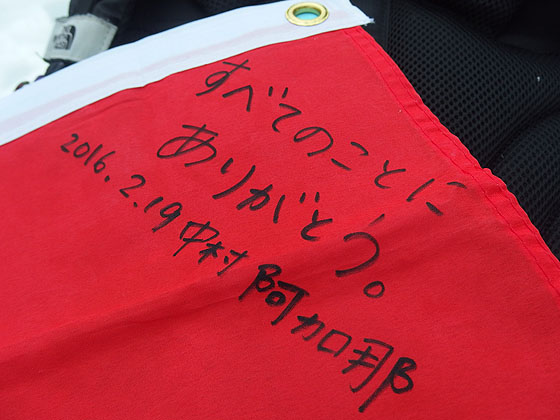 すべてのことに
ありがとう。
2016.2.19 中村 阿加那